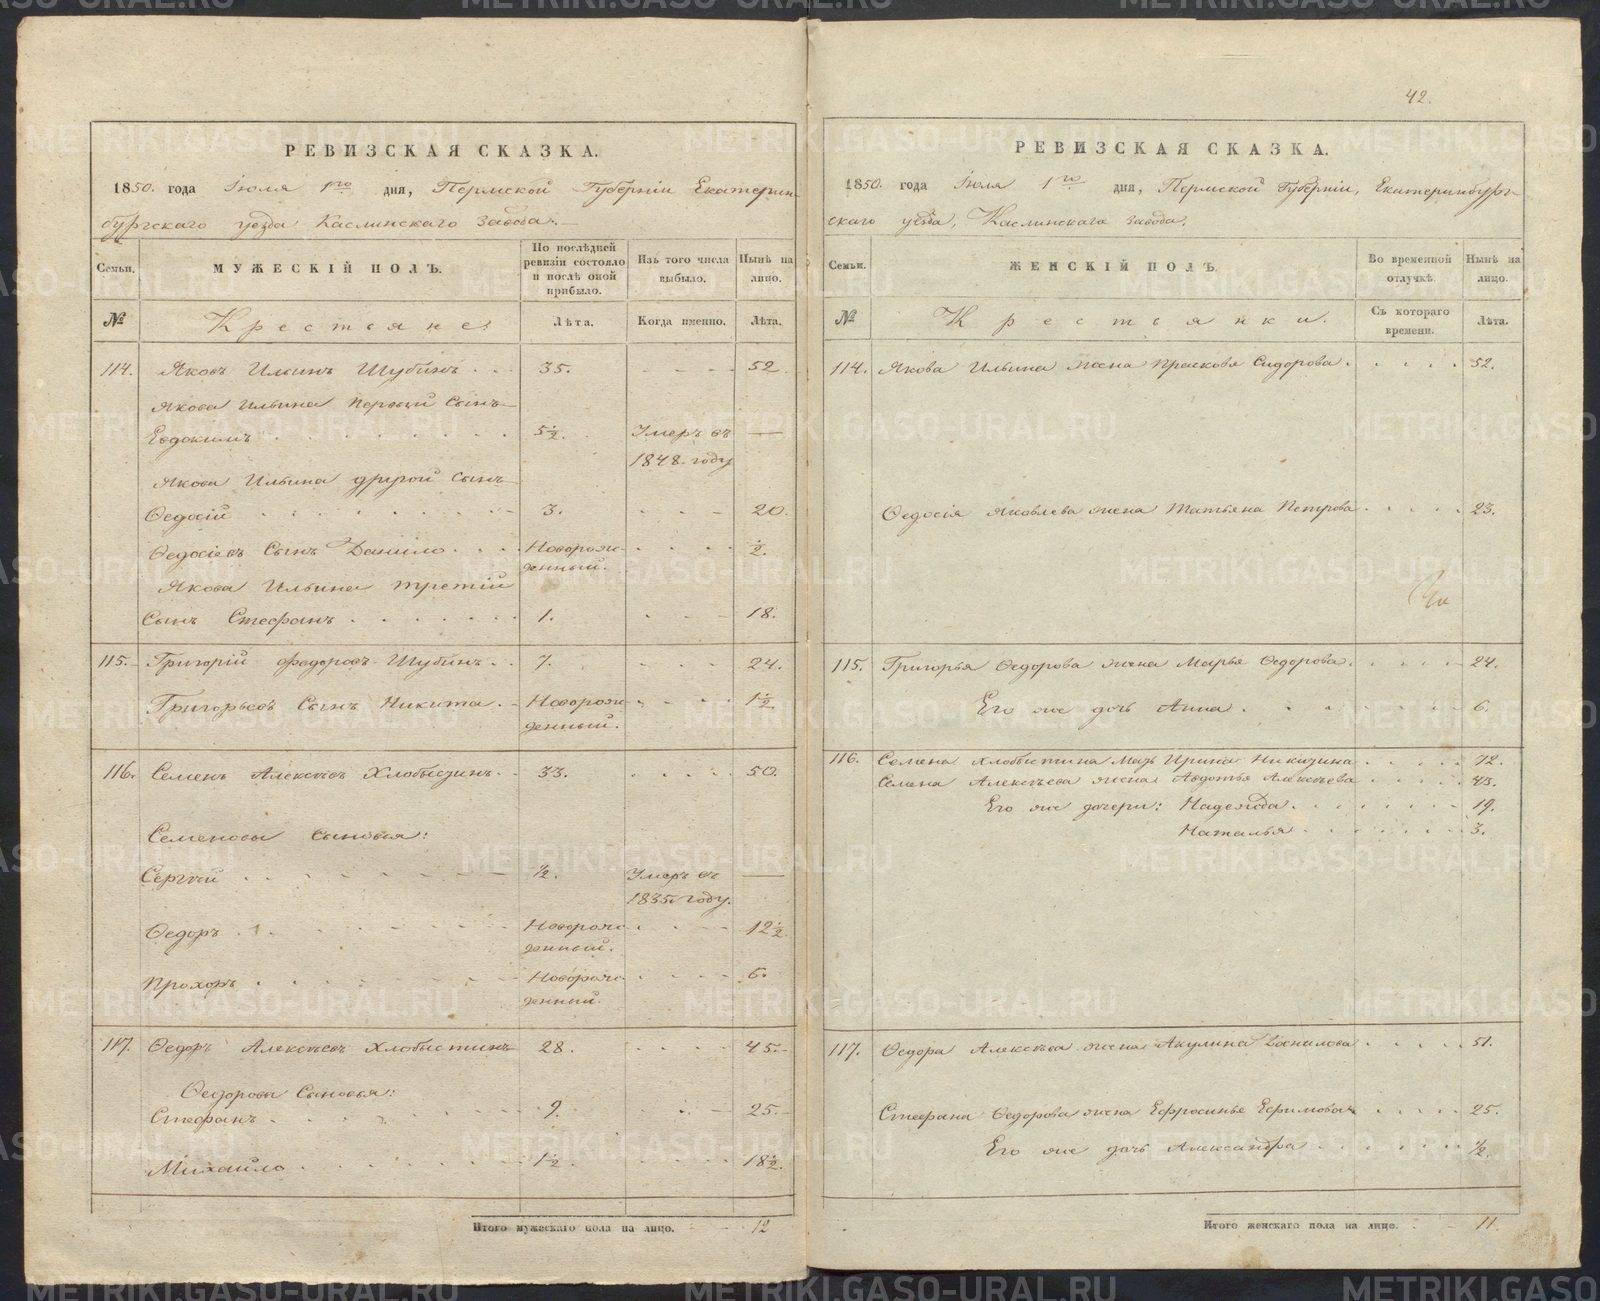 РЕВИЗСКАЯ СКАЗКА.
1850. года Іюля 1го дня, Пермской Губерніи Екатерин-
бургскаго уезда Каслинскаго Завода.
Семьи. МУЖЕСКІЙ ПОЛЪ. По послѣдней ревизіи состояло и послѣ оной прибыло. Изъ того числа выбыло. Нынѣ на лицо.
№ Крестьяне: Лѣта. Когда именно. Лѣта.
114. Яковъ Ильинъ Шубинъ 35. 52.
Якова Ильина первый Сынъ
Евдокимъ 5½. Умеръ въ —
1848. году
Якова Ильина другой Сынъ
Ѳедосій 3. 20.
Ѳедосіевъ Сынъ Данило Новорож- ½.
денный.
Якова Ильина третій
Сынъ Стефанъ 1. 18.
115. Григорій Федоровъ Шубинъ 7. 24.
Григорьевъ Сынъ Никита Новорож- 1½
денный.
116. Семенъ Алексѣевъ Хлобыстинъ 33. 50.
Семеновы Сыновья:
Сергѣй ½. Умеръ въ —
1835 году.
Ѳедоръ Новорож- 12½.
денный.
Прохоръ Новорож- 6.
денный.
117. Ѳедоръ Алексѣевъ Хлобыстинъ 28. 45.
Ѳедоровы Сыновья:
Стефанъ 9. 25.
Михайло 1½. 18½.
Итого мужескаго пола на лицо. 12
42.
РЕВИЗСКАЯ СКАЗКА.
1850. года Іюля 1го дня, Пермской Губерніи, Екатеринбург-
скаго уѣзда, Каслинскаго завода.
Семьи. ЖЕНСКІЙ ПОЛЪ. Во временной отлучкѣ. Нынѣ на лицо.
№ Крестьянки. Съ котораго времени. Лѣта.
114. Якова Ильина жена Прасковя Сидорова 52.
Ѳедосія Яковлева жена Татьяна Петрова 23.
115. Григорья Ѳедорова жена Марья Ѳедорова 24.
Его же дочь Анна 6.
116. Семена Хлобыстина Мать Ирина Никитина 72.
Семена Алексѣева жена Авдотья Алексѣева
Его же дочери: Надежда 19.
Наталья 3.
117. Ѳедора Алексѣева жена Акулина Данилова 51.
Стефана Ѳедорова жена Ефросинье Ефимова 25.
Его же дочь Александра ½.
Итого женскаго пола на лицо. 11.
METRIKI.GASO-URAL.RU